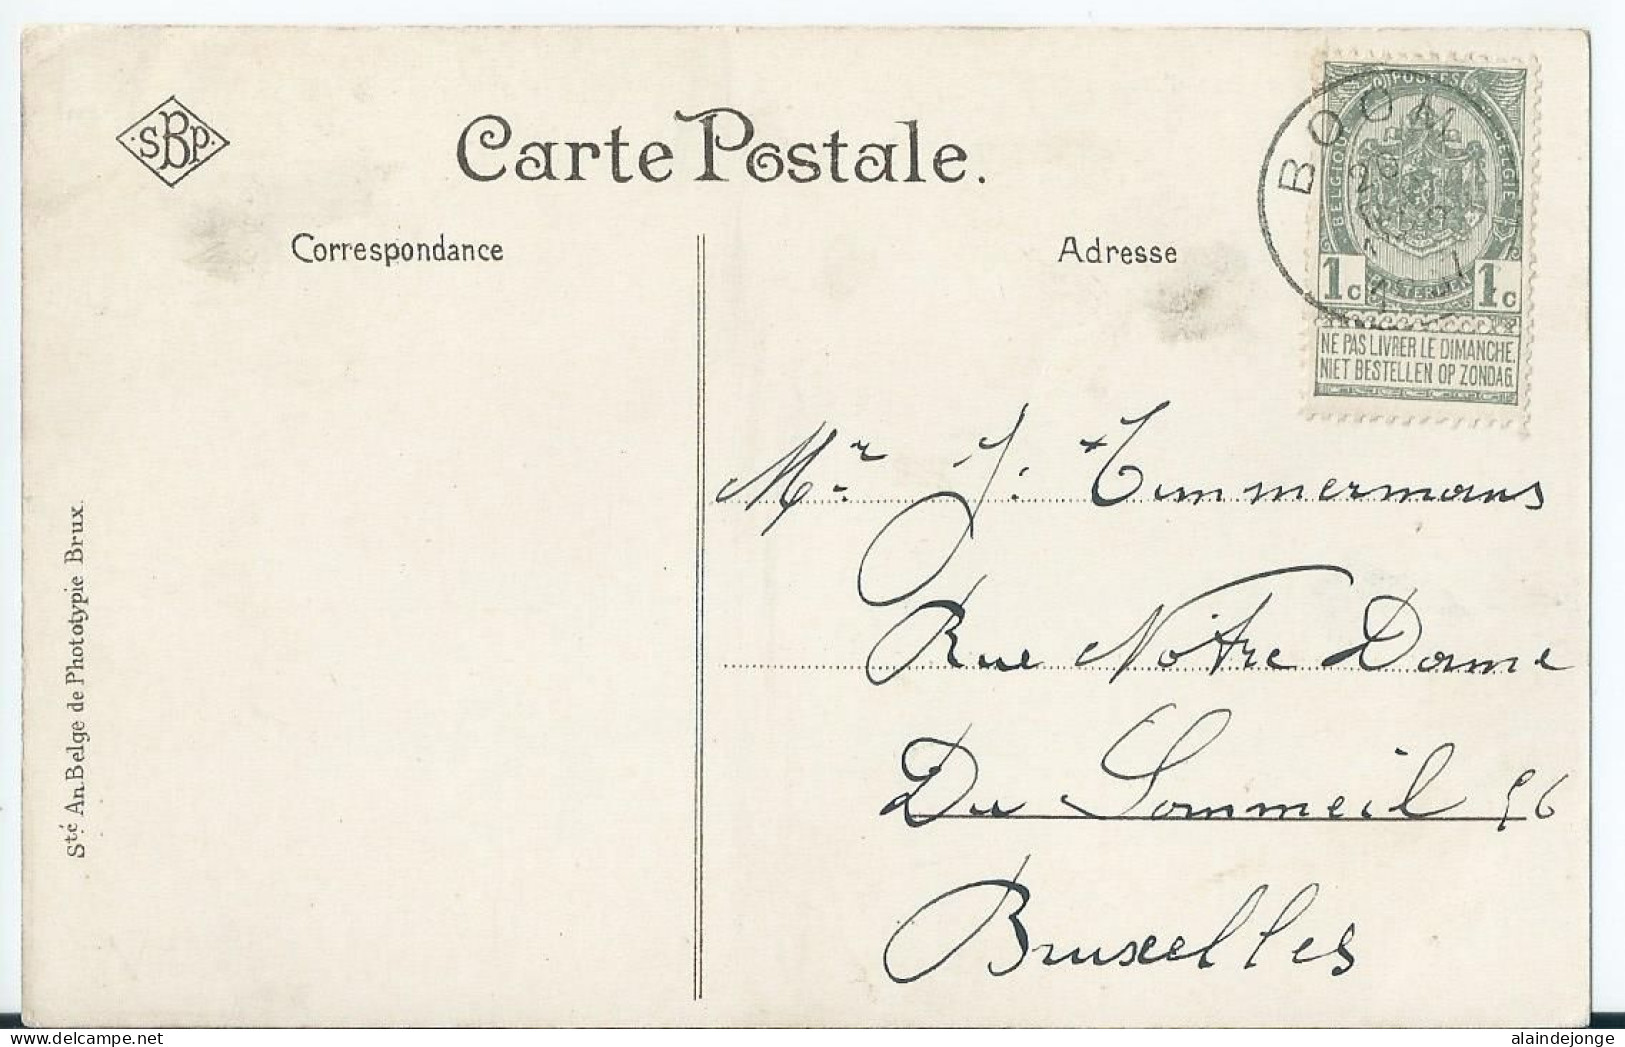 SBP
Carte Postale.
Correspondance
Adresse
BOOM
POSTES
BELGIQUE
BELGIË
1c 1c
POSTERIJEN
NE PAS LIVRER LE DIMANCHE.
NIET BESTELLEN OP ZONDAG.
Mr J. Timmermans
Rue Nôtre Dame
Du Sommeil 56
Bruxelles
Sté An. Belge de Phototypie Brux.
alaindejonge